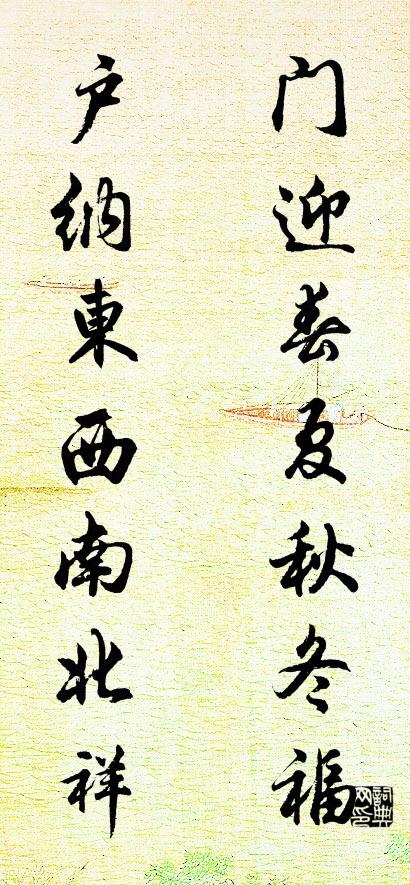 门迎春夏秋冬福
户纳東西南北祥
詞典网印